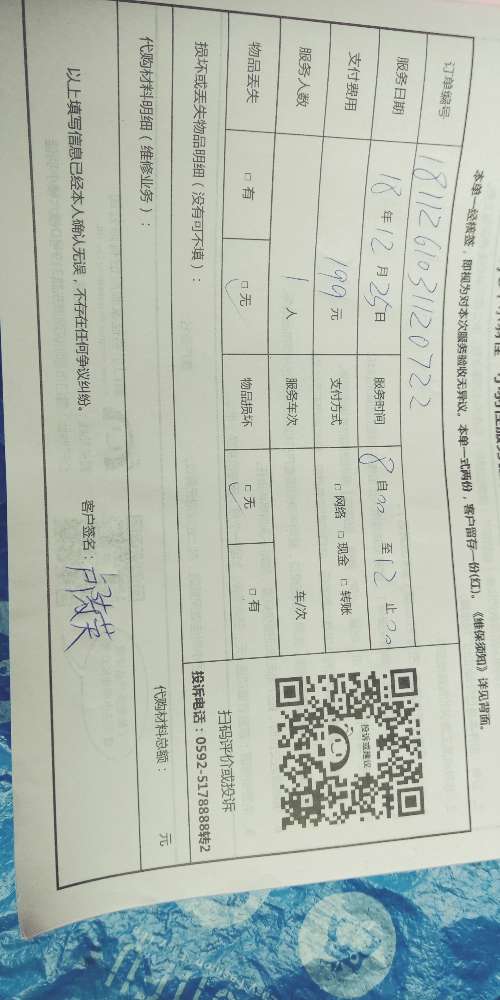 本单一经核签，即视为对本次服务验收无异议。本单一式两份，客户留存一份(红)。《维保须知》详见背面。
订单编号 1811261031120722
服务日期 18 年 12 月 25 日 服务时间 8 自 00 至 12 止 00
支付费用 199 元 支付方式 □ 网络 □ 现金 □ 转账
服务人数 1 人 服务车次 车/次
物品丢失 □ 有 □ 无 物品损坏 □ 无 □ 有
损坏或丢失物品明细（没有可不填）：
投诉或建议
扫码评价或投诉
投诉电话：0592-5178888转2
代购材料明细（维修业务）：
代购材料总额： 元
以上填写信息已经本人确认无误，不存在任何争议纠纷。 客户签名：